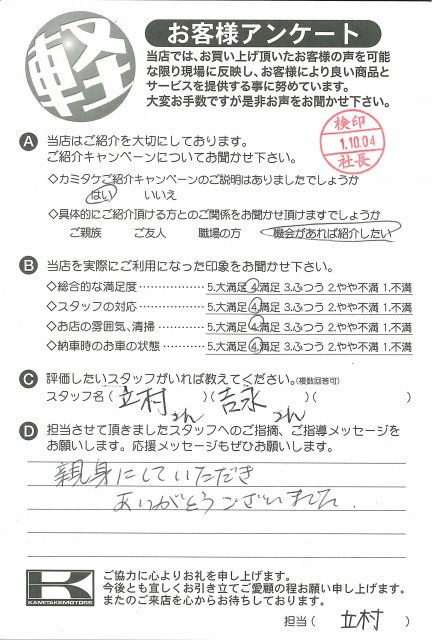 軽
お客様アンケート
当店では、お買い上げ頂いたお客様の声を可能
な限り現場に反映し、お客様により良い商品と
サービスを提供する事に努めています。
大変お手数ですが是非お声をお聞かせ下さい。
検印
1.10.04
社長
A 当店はご紹介を大切にしております。
ご紹介キャンペーンについてお聞かせ下さい。
◇カミタケご紹介キャンペーンのご説明はありましたでしょうか
はい いいえ
◇具体的にご紹介頂ける方とのご関係をお聞かせ頂けますでしょうか
ご親族 ご友人 職場の方 機会があれば紹介したい
B 当店を実際にご利用になった印象をお聞かせ下さい。
◇総合的な満足度………………5.大満足 4.満足 3.ふつう 2.やや不満 1.不満
◇スタッフの対応………………5.大満足 4.満足 3.ふつう 2.やや不満 1.不満
◇お店の雰囲気、清掃…………5.大満足 4.満足 3.ふつう 2.やや不満 1.不満
◇納車時のお車の状態…………5.大満足 4.満足 3.ふつう 2.やや不満 1.不満
C 評価したいスタッフがいれば教えてください。(複数回答可)
スタッフ名(立村さん)(吉永さん)( )
D 担当させて頂きましたスタッフへのご指摘、ご指導メッセージを
お願いします。応援メッセージもぜひお願いします。
親身にしていただき
ありがとうございました。
K
KAMITAKE MOTORS
ご協力に心よりお礼を申し上げます。
今後とも宜しくお引き立てご愛顧の程お願い申し上げます。
またのご来店を心からお待ちしております。
担当( 立村 )